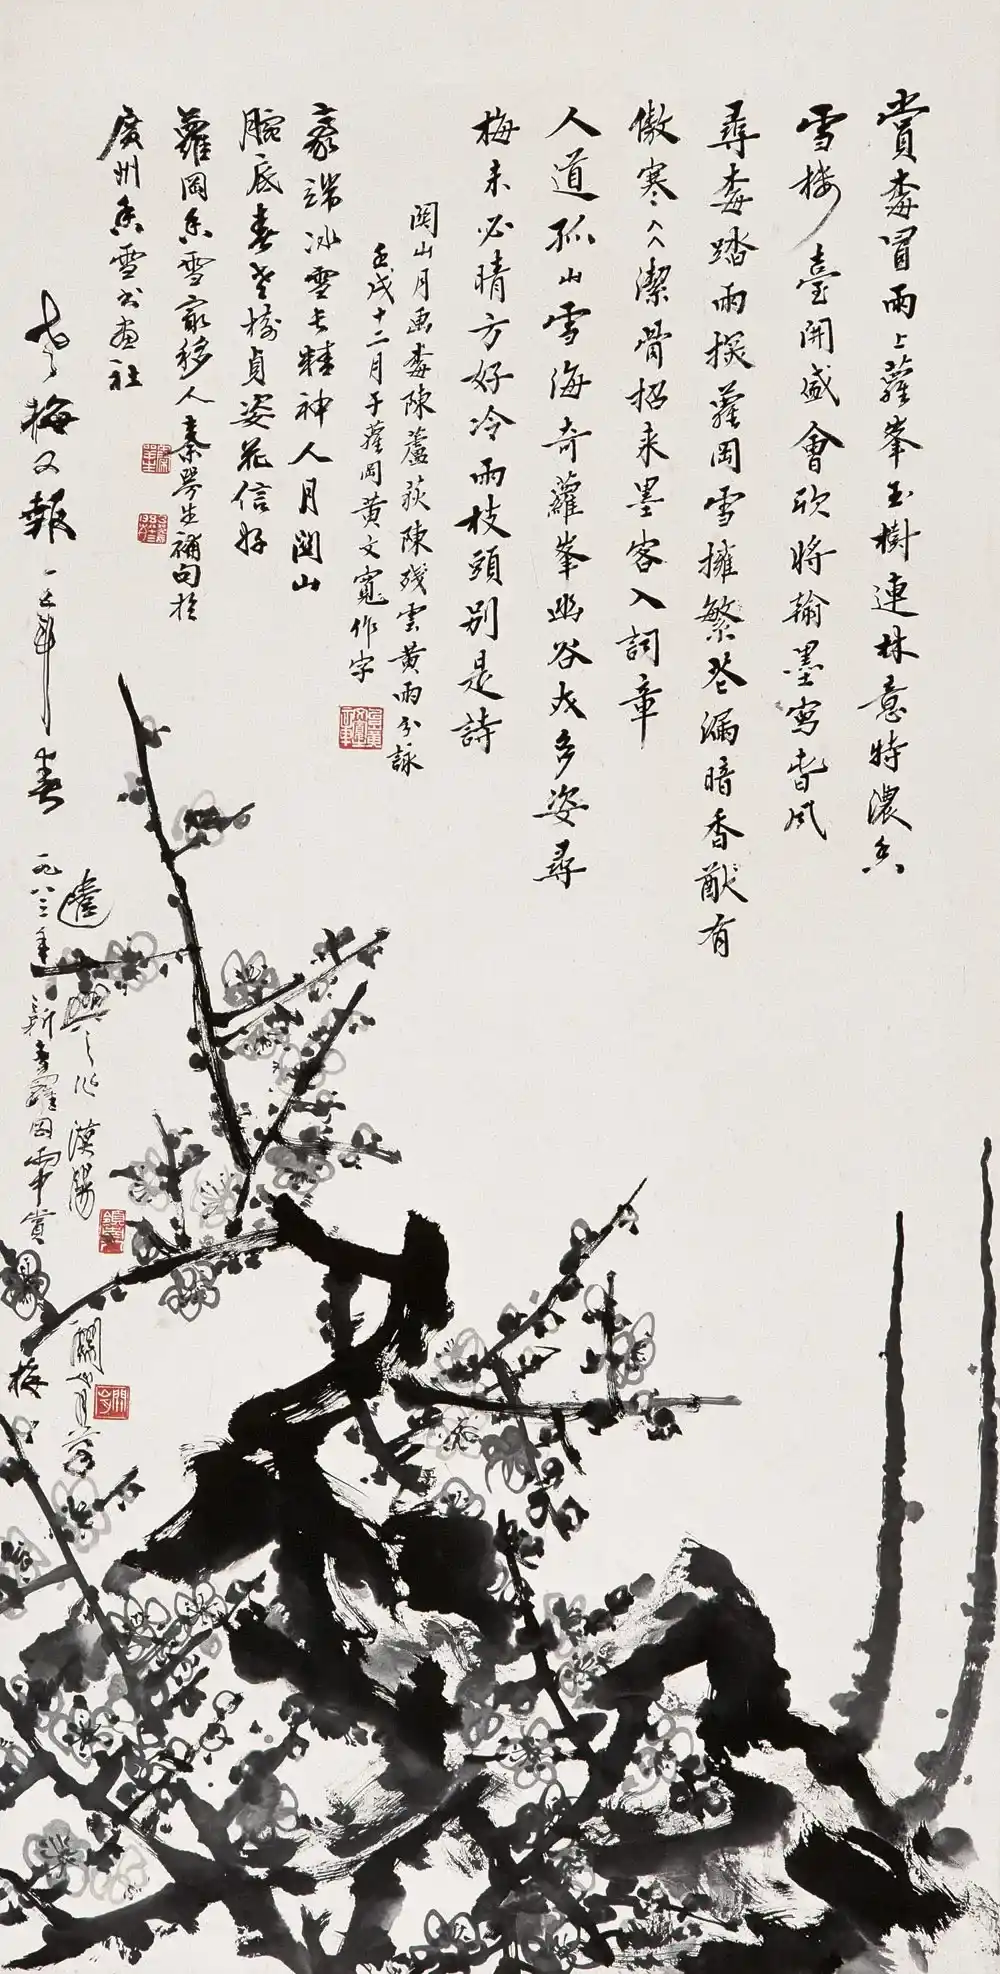 賞梅冒雨上蘿峯玉樹連林意特濃香
雪樓臺開盛會欣將翰墨寫春風
尋梅踏雨探蘿岡雪擁繁花漏暗香猷有
傲寒冰潔骨招来墨客入詞章
人道孤山雪海奇蘿峯幽谷尤多姿尋
梅未必晴方好冷雨枝頭别是詩
関山月画梅陳蘆荻陳残雲黄雨分詠
壬戌十二月于蘿岡黄文寬作字
豪端冰雪長精神人月関山
腕底春老樹貞姿花信好
蘿岡香雪最移人秦咢生補句於
廣州香雪書画社
老梅又報一年春
遣興之作漢陽
一九八三年新春羅岡雨中賞
梅
關山月